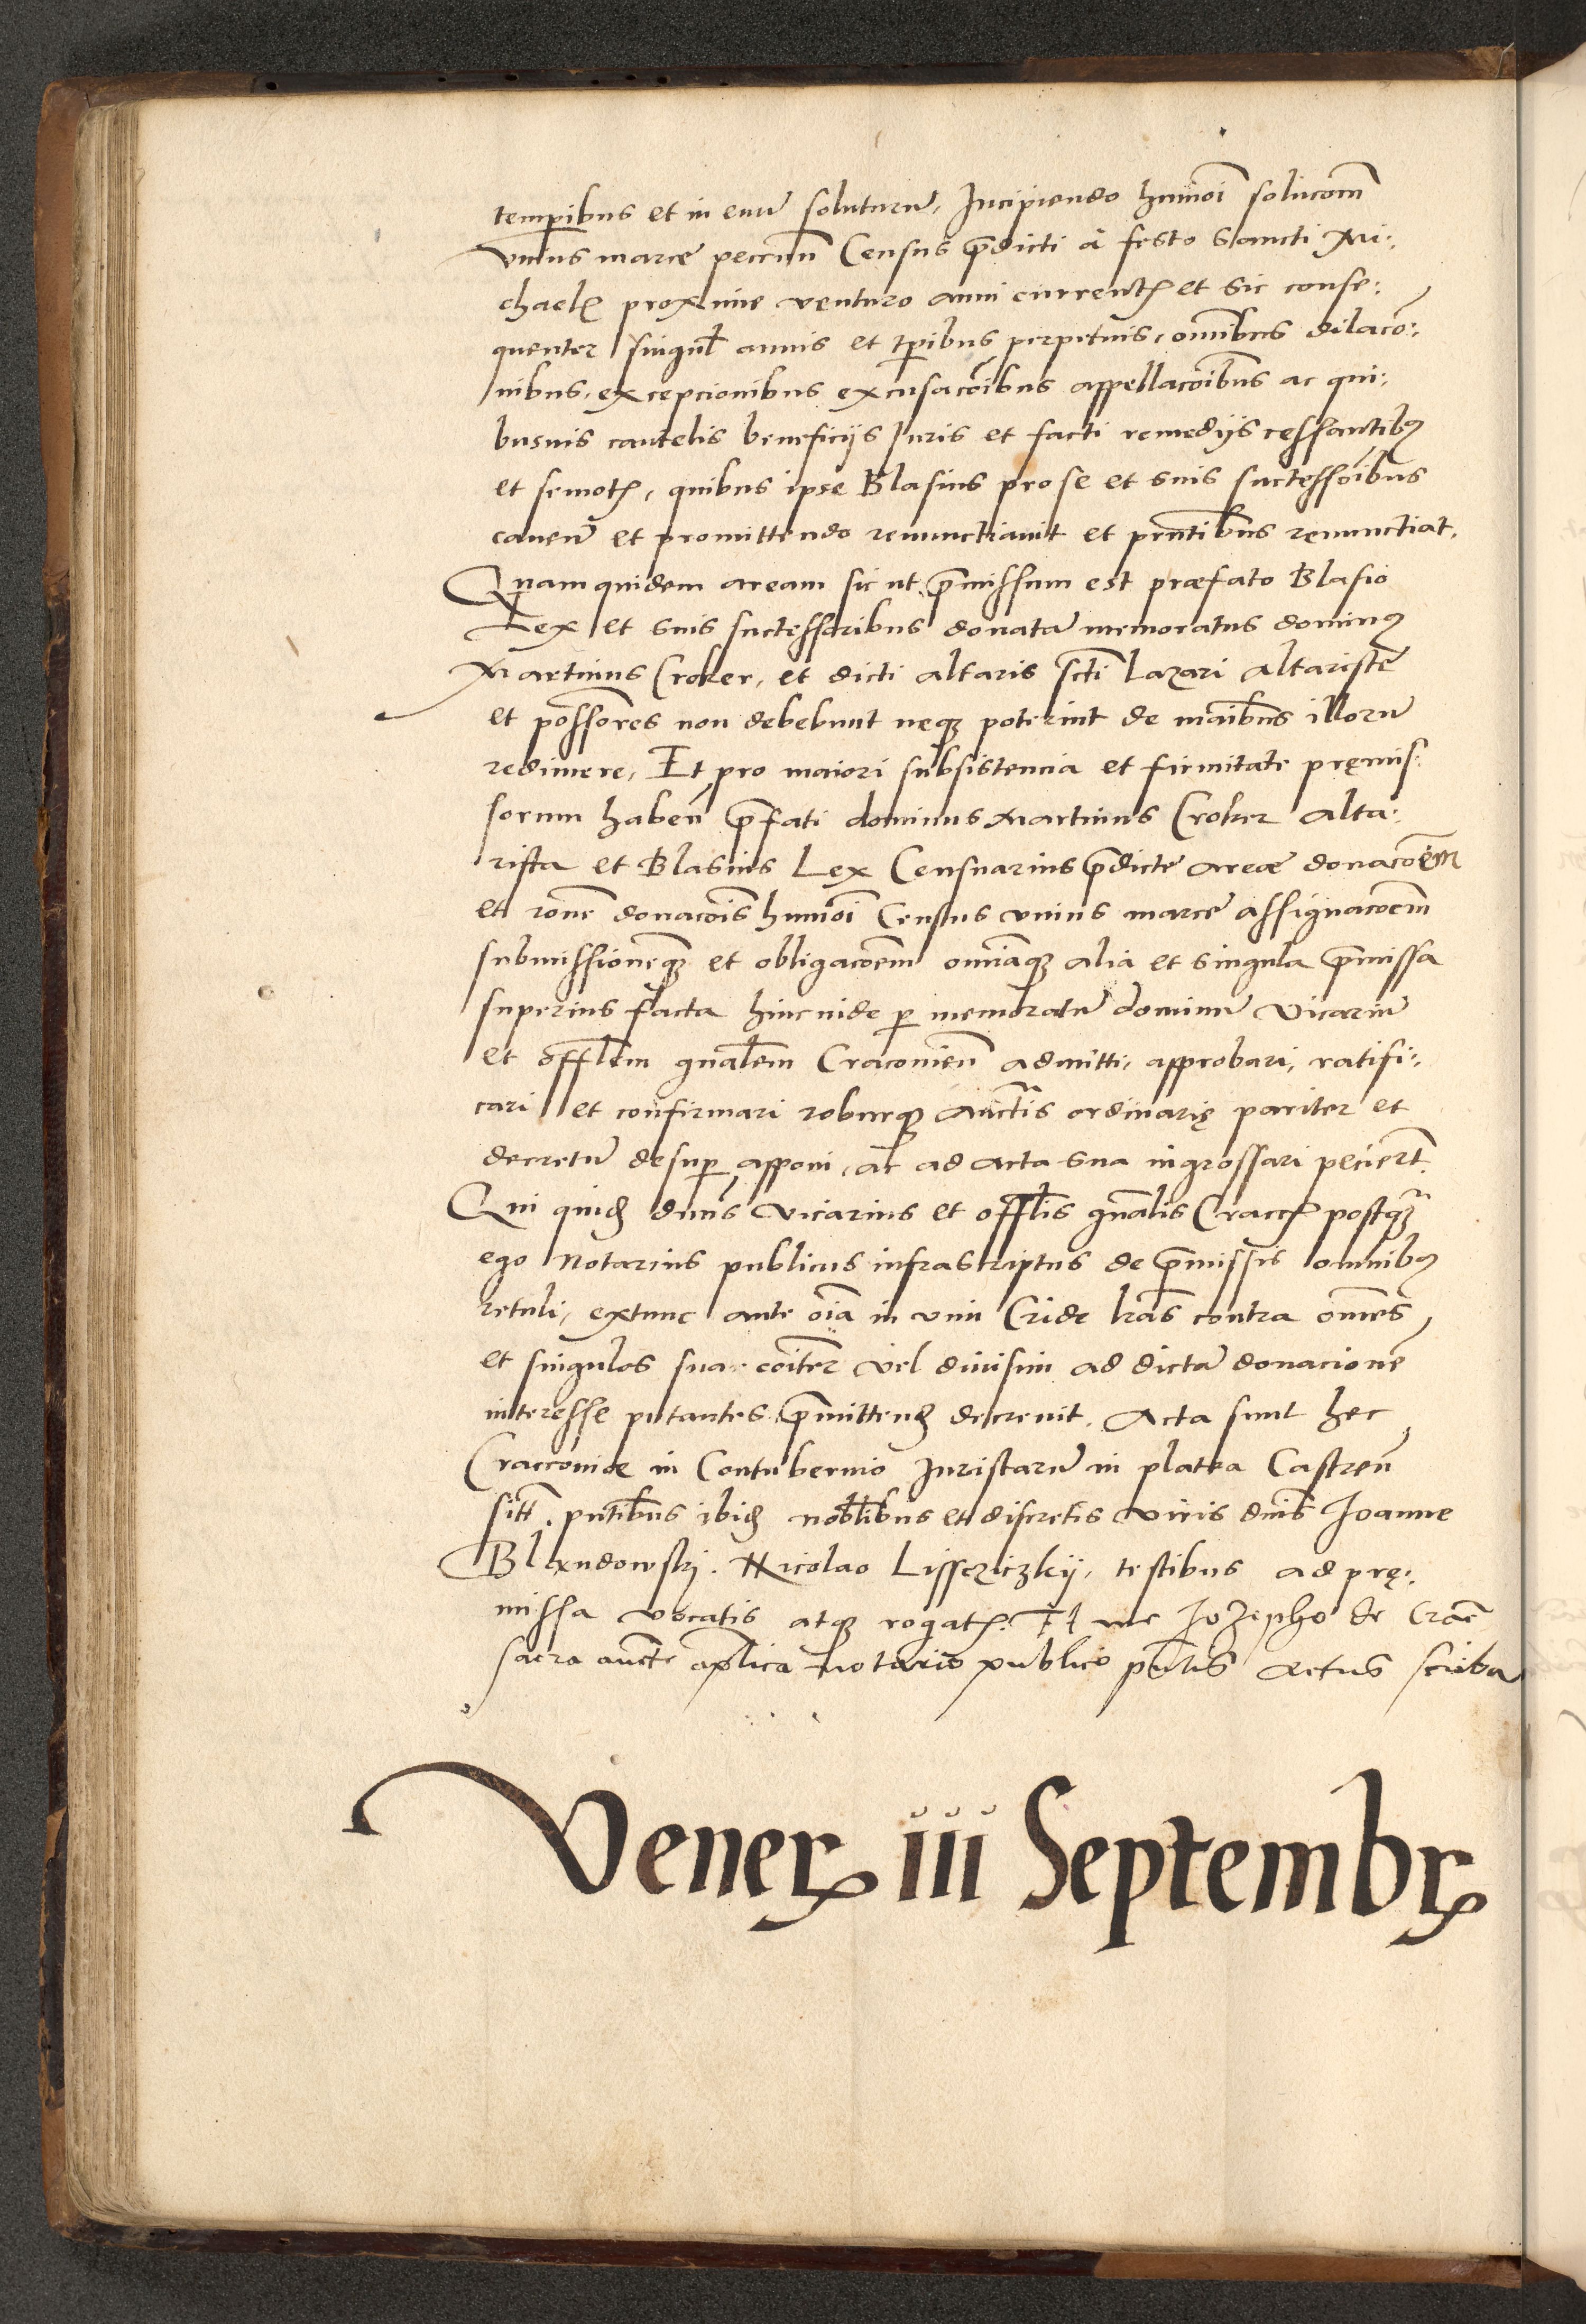 temp̄ibus et in euū soluturū, Incipiendo hm̄oi solucōm
vnius marcę peccuū Census p̄dicti à festo Sancti Mi:
chaelꝭ proxime venturo anni currentꝭ et sic conse:
quenter singul̄ annis et tp̄ibus perpetuis, omībus dilacō:
nibus, excepcionibus excusacōibus appellacōibus ac qui:
busuis cautelis beneficijs Iuris et facti remedijs cessantibꝰ
et semotꝭ, quibus ipse Blasius pro se et suis successōibus
cauen̄ et promittendo renunctiauit et pn̄tibus renunctiat.
Quam quidem aream sic ut p̄missum est præfato Blasio
Lex et suis successoribus donatā memoratus dominꝰ
Martinus Croker, et dicti altaris sc̄ti Lazari Altaristę
et possores non debebunt neqꝫ poterint de maībus illorū
redimere, Et pro maiori subsistencia et firmitate pręmis:
sorum haben̄ p̄fati dominus Martinus Croker Alta:
rista et Blasius Lex Censuarius p̄dictę areæ donacōem
et rōne donacōis hm̄oi Census vnius marcę assignacōem
submissionēqꝫ et obligacōem omīaqꝫ alia et singula p̄missa
superius facta hincinde ꝑ memoratū dominū Vicariū
et offlēm gn̄alem Cracouien̄ admitti, approbari, ratifi:
cari et confirmari roburqꝫ auctīs ordinarię pariter et
decretū desuꝑ apponi, ac ad acta sua ingrossari pecier̄t.
Qui quidꝫ dn̄us Vicarius et offlīs gn̄alis Craccꝭ postqꝫ
ego Notarius publicus infrascriptus de p̄missis omnibꝰ
retuli, extunc ante oīa in vim Cride lrās contra omēs
et singulos sua cōiter vel diuisim ad dictā donacionē
interesse putantes p̄mittendꝫ decreuit. Acta sunt hec
Craccouiæ in Contubernio Iuristarū in platea Castren̄
sitt̄. pn̄tibus ibidꝫ nobl̄ibus et discretis viris dn̄is Ioanne
Blendowskj. Nicolao Lisseziczkij, testibus ad prę:
missa vocatis atqꝫ rogatꝭ. Et me Iozepho de Crac̄
sacra auct̄e ap̄lica notario publico pn̄tis actus scriba
Venerꝭ iii Septembrꝭ